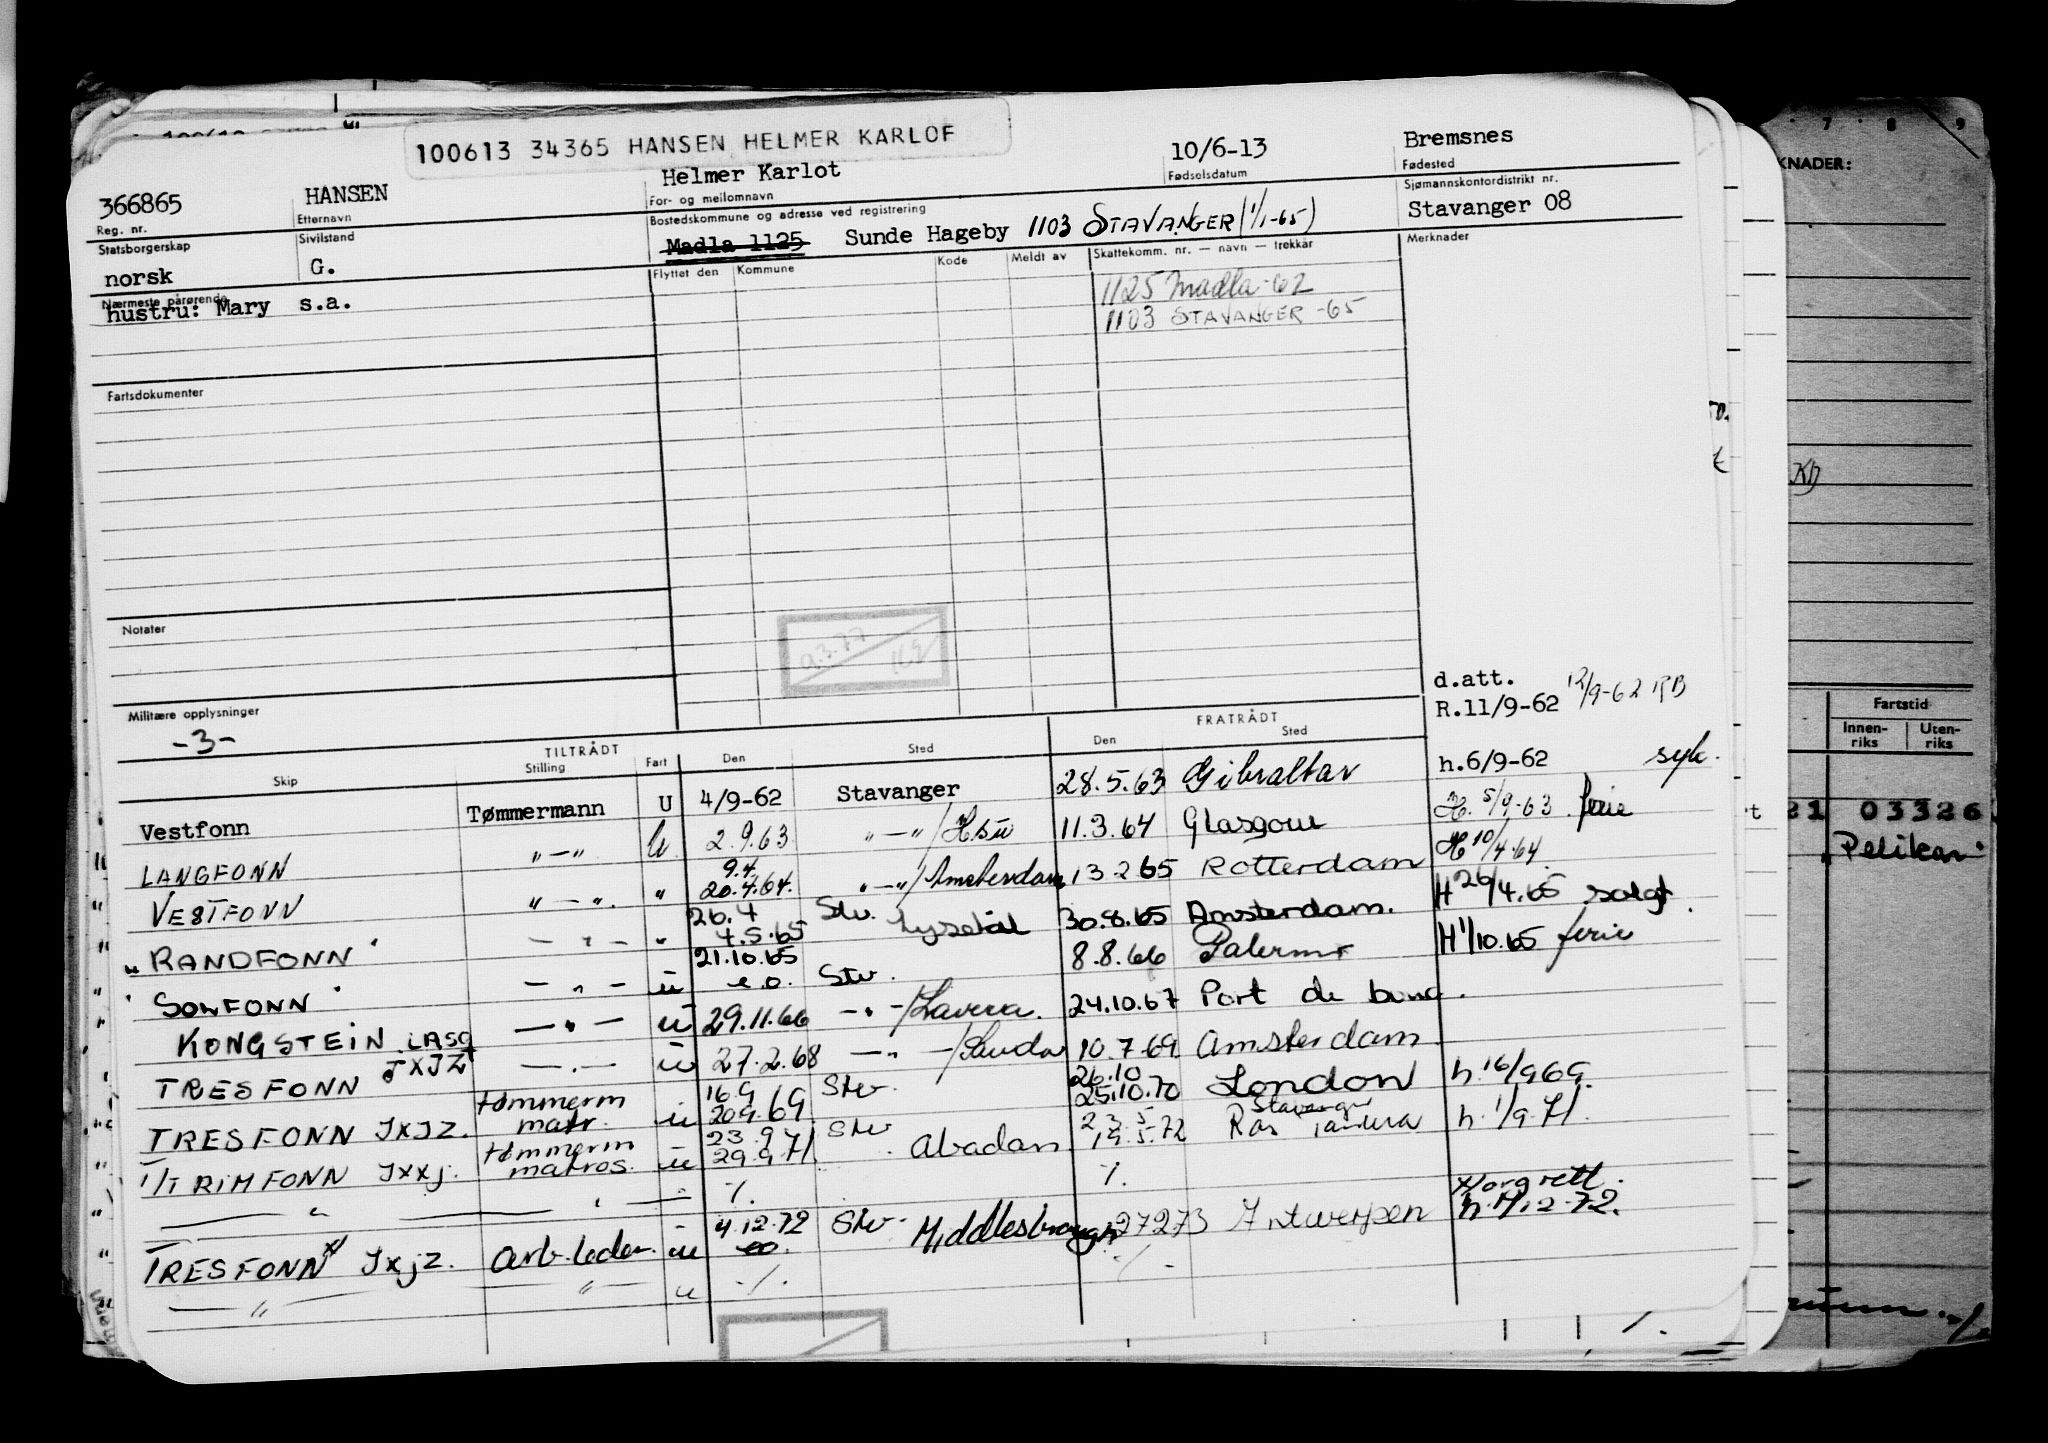 100613 34365 HANSEN HELMER KARLOF
366865 HANSEN Helmer Karlot 10/6-13 Bremsnes
Reg. nr. Etternavn For- og mellomnavn Fødselsdatum Fødested
Statsborgerskap Sivilstand Bostedskommune og adresse ved registrering Sjømannskontordistrikt nr.
norsk G. Madla 1125 Sunde Hageby 1103 STAVANGER (1/1-65) Stavanger 08
Nærmeste pårørende Flyttet den Kommune Kode Meldt av Skattekomm. nr. — navn — trekkår Merknader
hustru: Mary s.a. 1125 Madla-62
1103 STAVANGER -65
Fartsdokumenter
Notater
9.3.77
Militære opplysninger
-3-
d.att.
R.11/9-62 12/9-62 RB
TILTRÅDT FRATRÅDT
Skip Stilling Fart Den Sted Den Sted
Vestfonn Tømmermann U 4/9-62 Stavanger 28.5.63 Gibraltar h.6/9-62 syk.
LANGFONN "—" U 2.9.63 "—"/ 11.3.64 Glasgow H. 5/9-63 ferie
VESTFONN "—" " 9.4 20.4.64. "—"/Amsterdam 13 2 65 Rotterdam H 10/4.64
" RANDFONN " — " — " 26.4 4.5.65 Stv. 30.8.65 Amsterdam. H 26/4.65 solgt
" SOLFONN " — " — u 21.10.65 e.o. Stv. 8.8.66 Palermo H 1/10.65 ferie
KONGSTEIN LASQ — " — u 29.11.66 -"-/Lavera. 24.10.67 Port de bouc.
TRESFONN JXJZ — " — u 27.2.68 — " —/Sauda 10.7.69 Amsterdam
TRESFONN JXJZ. tømmerm matr. u 16.9 20.9.69 Stv 26.10 25.10.70 London h. 16/9 69.
T/T RIMFONN JXXJ. tømmerm matros. u 23.9 29.9.71. Stv Abadan 23.5 19.5.72 Stavanger Ras Tanura h. 1/9.71.
— " — " — " ./. ./.
TRESFONN x/ JXJZ. Arb.leder. u 4.12.72 eo. Stv. Middlesbrough 27 2 73 Antwerpen x/org rett. h. 4/12-72.
— " — " — u ./. ./.
KNADER:
Fartstid
Innen-riks Uten-riks
21 03326
"Pelikan"